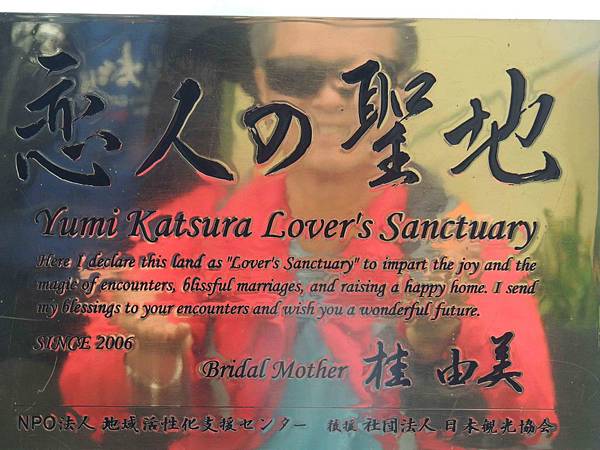 恋人の聖地
Yumi Katsura Lover's Sanctuary
Here I declare this land as "Lover's Sanctuary" to impart the joy and the
magic of encounters, blissful marriages, and raising a happy home. I send
my blessings to your encounters and wish you a wonderful future.
SINCE 2006
Bridal Mother 桂 由美
NPO法人 地域活性化支援センター 後援 社団法人 日本観光協会